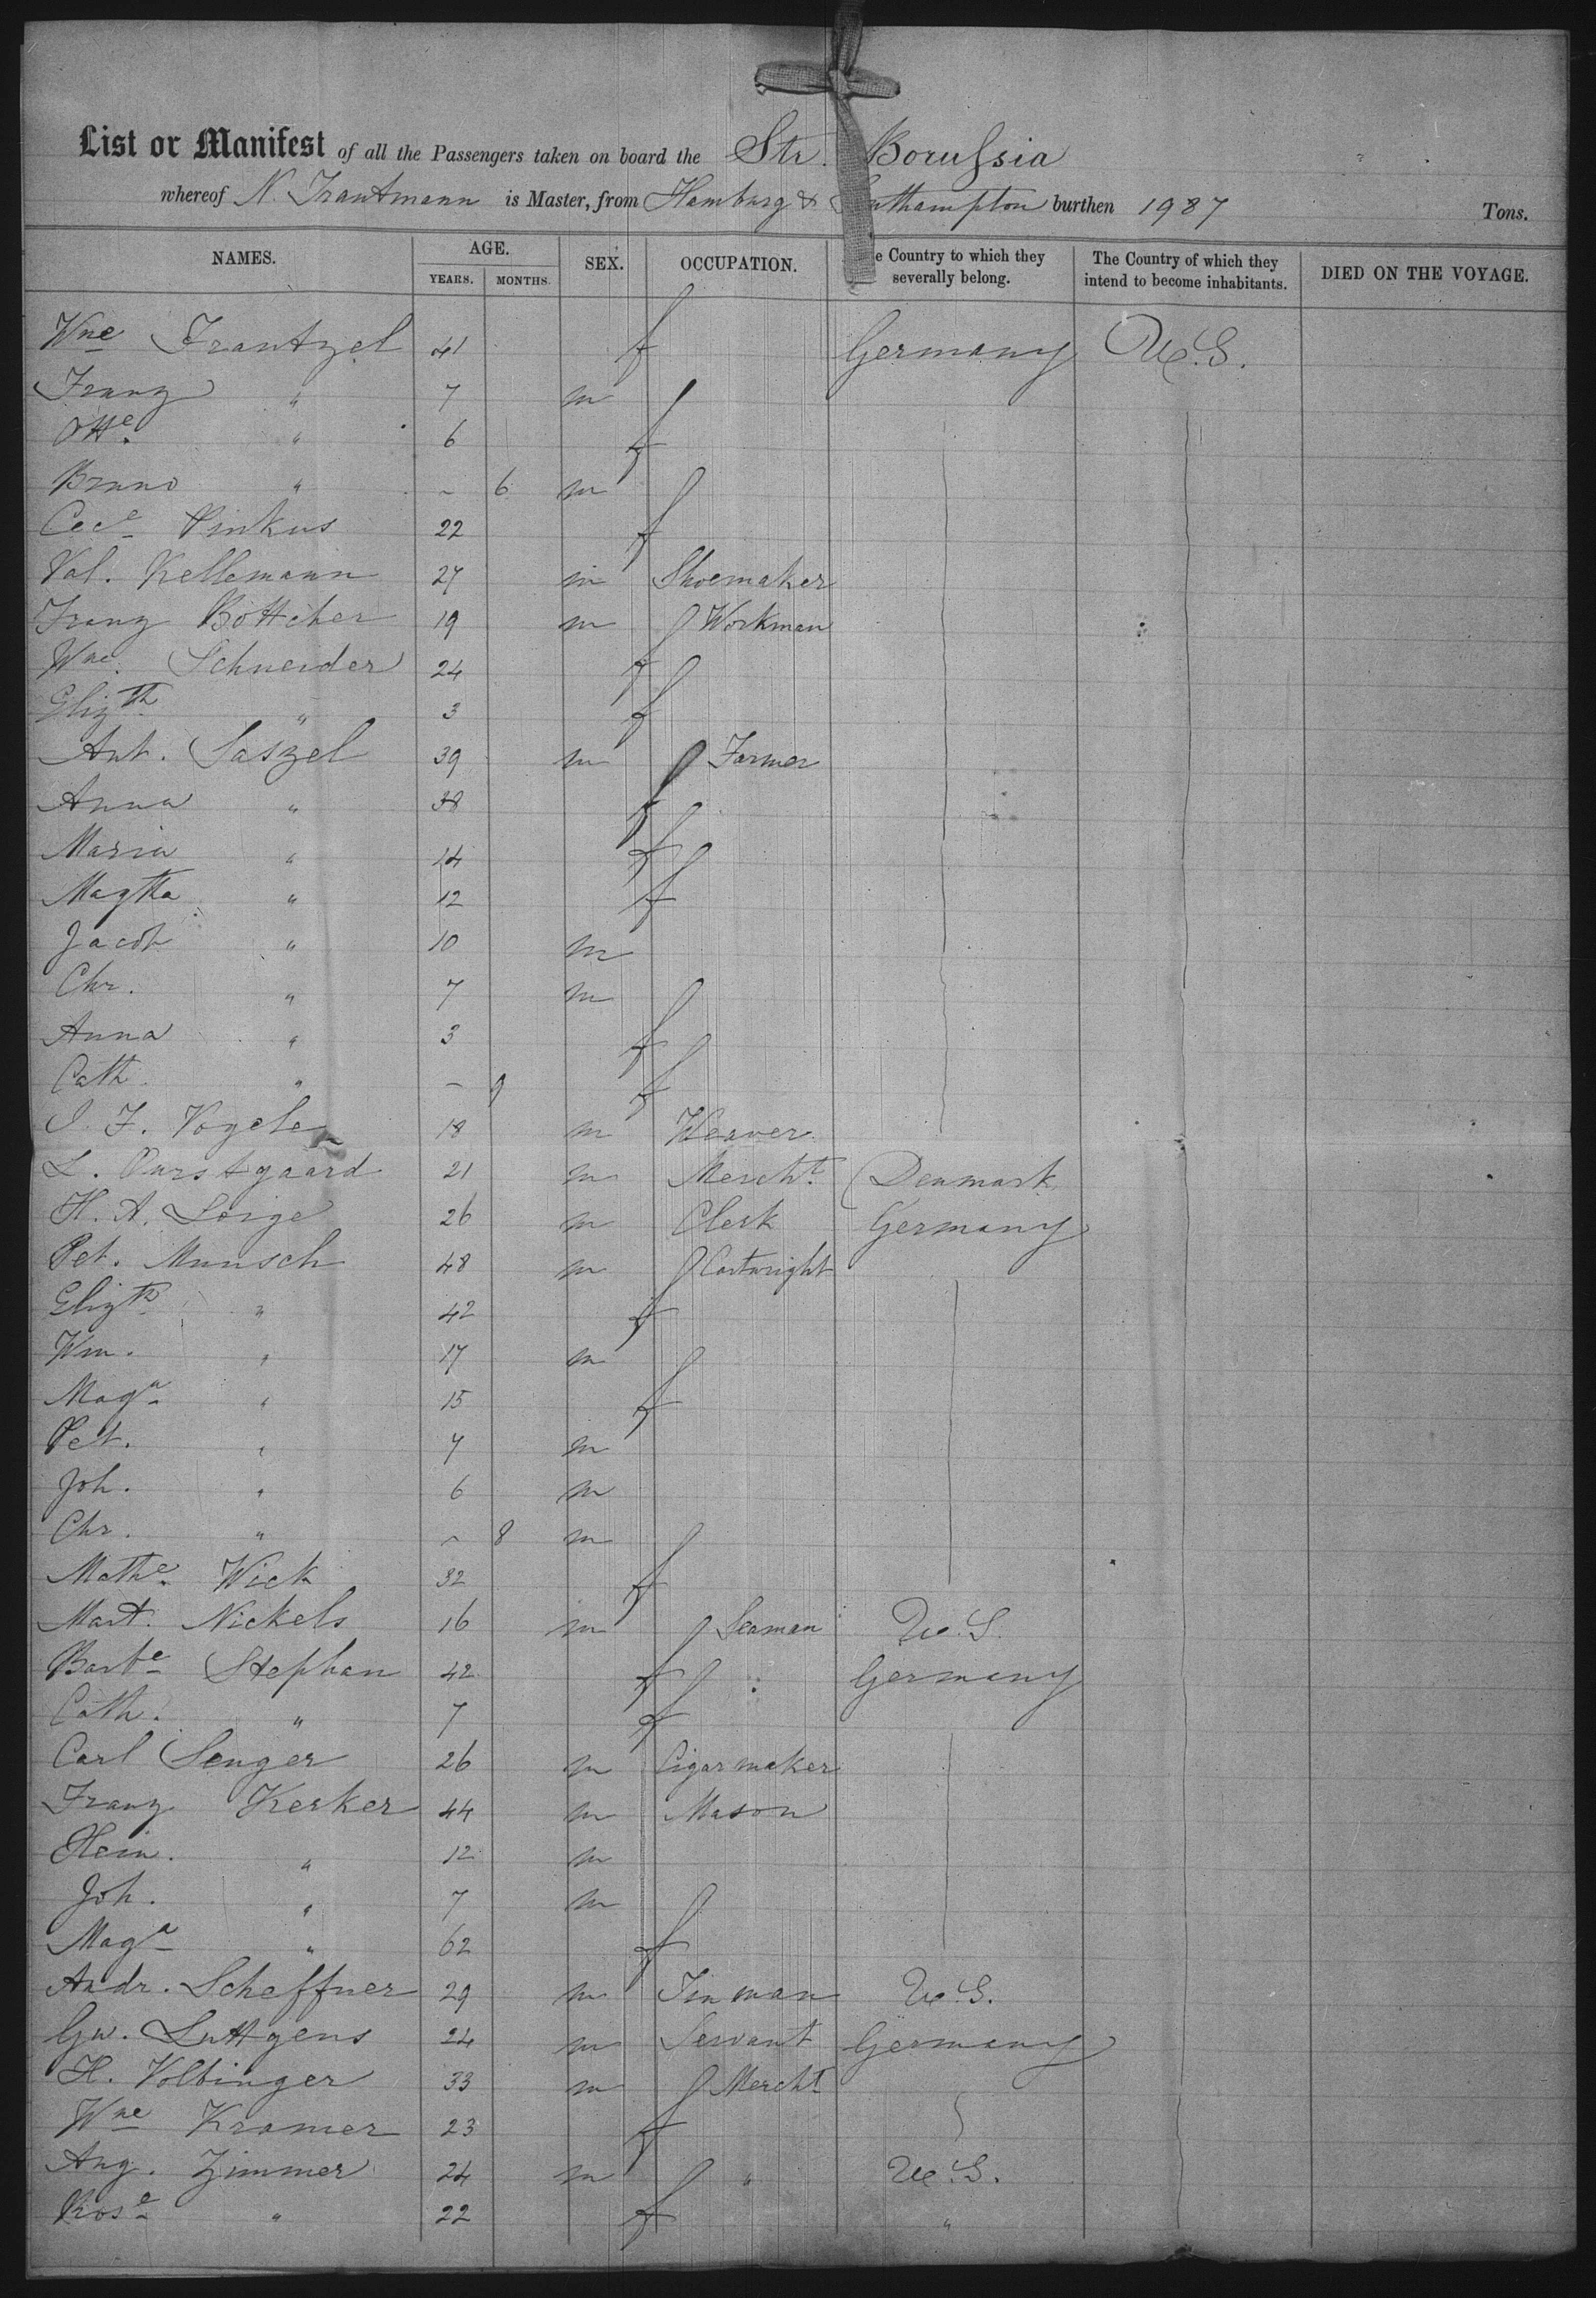 List or Manifest of all the Passengers taken on board the Str. Borussia
whereof N. Trautmann is Master, from Hamburg & Southampton burthen 1987 Tons.
NAMES. AGE. SEX. OCCUPATION. e Country to which they severally belong. The Country of which they intend to become inhabitants. DIED ON THE VOYAGE.
YEARS. MONTHS.
Wne Frantzel 41 f Germany U.S.
Franz " 7 m
Otte. " 6 f
Bruno " ~ 6 m
Cece Pinkus 22 f
Val. Kellemann 27 m Shoemaker
Franz Böttcher 19 m Workman
Wne. Schneider 24 f
Elizth " 3 f
Ant. Saszel 39 m Farmer
Anna " 38 f
Maria " 14 f
Magtha " 12 f
Jacob " 10 m
Chr. " 7 m
Anna " 3 f
Cath. " – 9 f
J. F. Vogele 18 m Weaver
L. Ourstgaard 21 m Mercht. Denmark
H. A. Sorge 26 m Clerk Germany
Pet. Munsch 48 m Cartwright
Elizth " 42 f
Wm. " 17 m
Maga " 15 f
Pet. " 7 m
Joh. " 6 m
Chr. " ~ 8 m
Mathe. Wick 32 f
Mart. Nickels 16 m Seaman U.S.
Barbe Stephan 42 f Germany
Cath. " 7 f
Carl Senger 26 m Cigarmaker
Franz Kerker 44 m Mason
Hein. " 12 m
Joh. " 7 m
Maga " 62 f
Andr. Scheffner 29 m Tinman U.S.
Gw. Luttgens 24 m Servant Germany
H. Volbinger 33 m Mercht
Wne Kramer 23 f
Aug. Zimmer 24 m " U.S.
Rose " 22 f "